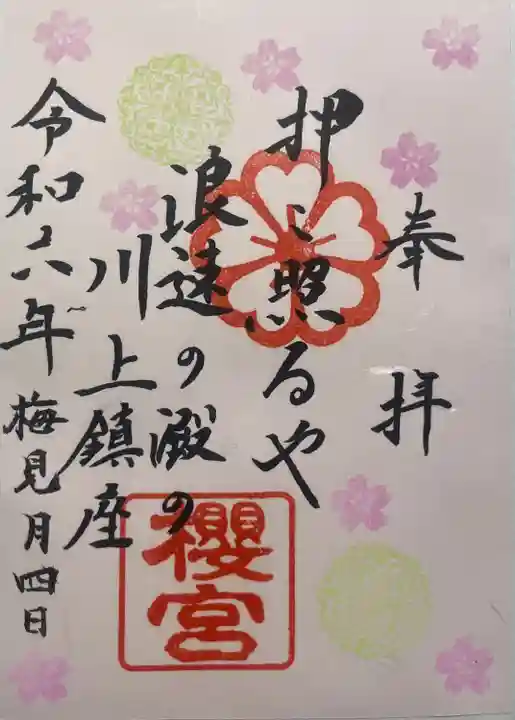 奉拝
押し照るや
浪速の澱の
川上鎮座
令和六年 梅見月四日
櫻宮